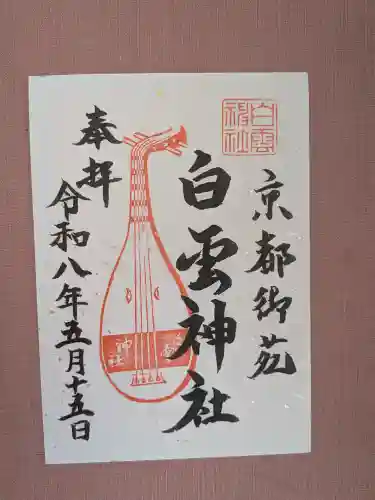 京都御苑
白雲神社
奉拝
令和八年五月十五日
白雲
神社
白雲
神社